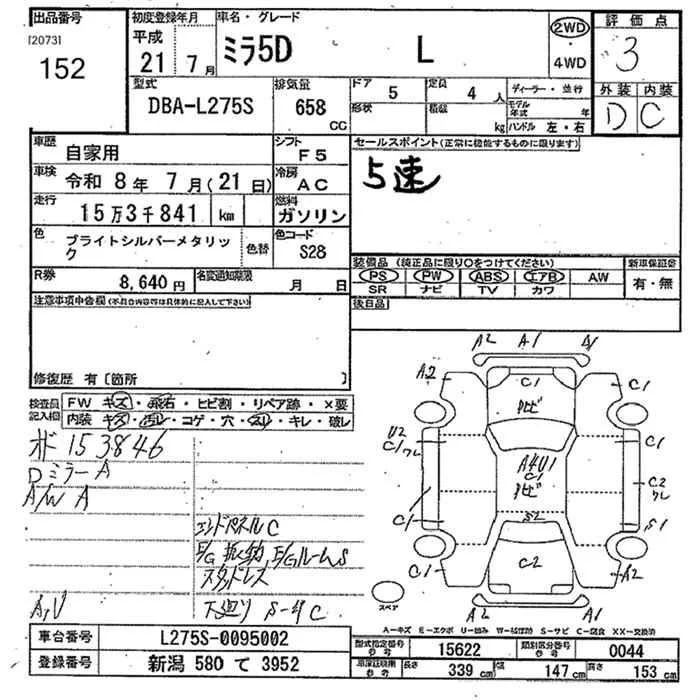 出品番号 初度登録年月 車名・グレード 2WD 評価点
[2073] 平成 ミラ5D L ・ 3
152 21年 7月 4WD 外装 内装
型式 排気量 ドア 5 定員 4人 ディーラー・並行 D C
DBA-L275S 658cc 形状 積載 kg モデル年式 年
ハンドル 左・右
車歴 自家用 シフト F5 セールスポイント(正常に機能するものに限ります)
車検 令和 8年 7月(21日) 冷房 AC 5速
走行 15万3千841 km 燃料 ガソリン
色 ブライトシルバーメタリック 色替 色コード S28
装備品(純正品に限り○をつけてください) 新車保証書
PS PW ABS エアB AW 有・無
SR ナビ TV カワ
R券 8,640円 名変通知期限 月 日 後日品
注意事項申告欄(不具合内容等は具体的に記入して下さい)
修復歴 有[箇所 ]
検査員記入欄 FW キズ・飛石・ヒビ割・リペア跡・×要
内装 キズ・汚レ・コゲ・穴・スレ・キレ・破レ
153846
Dミラー A
A/W A
エンドパネル C
E/G 振動 E/Gルーム S
スタッドレス
A,U 下廻り S-4 C
A2 A1 A1
A2 C1 C1
サビ
U2 C1
C1 ワレ A4U1 C2
C1 ワレ
サビ
C1 S2 S1
C1 C2 A2
A2 A1
スペア
A-キズ E-エクボ U-凹み W-補修跡 S-サビ C-腐食 XX-交換済
車台番号 L275S-0095002 型式指定番号 参考 15622 類別区分番号 参考 0044
登録番号 新潟 580 て 3952 参考 長さ 339cm 幅 147cm 高さ 153cm